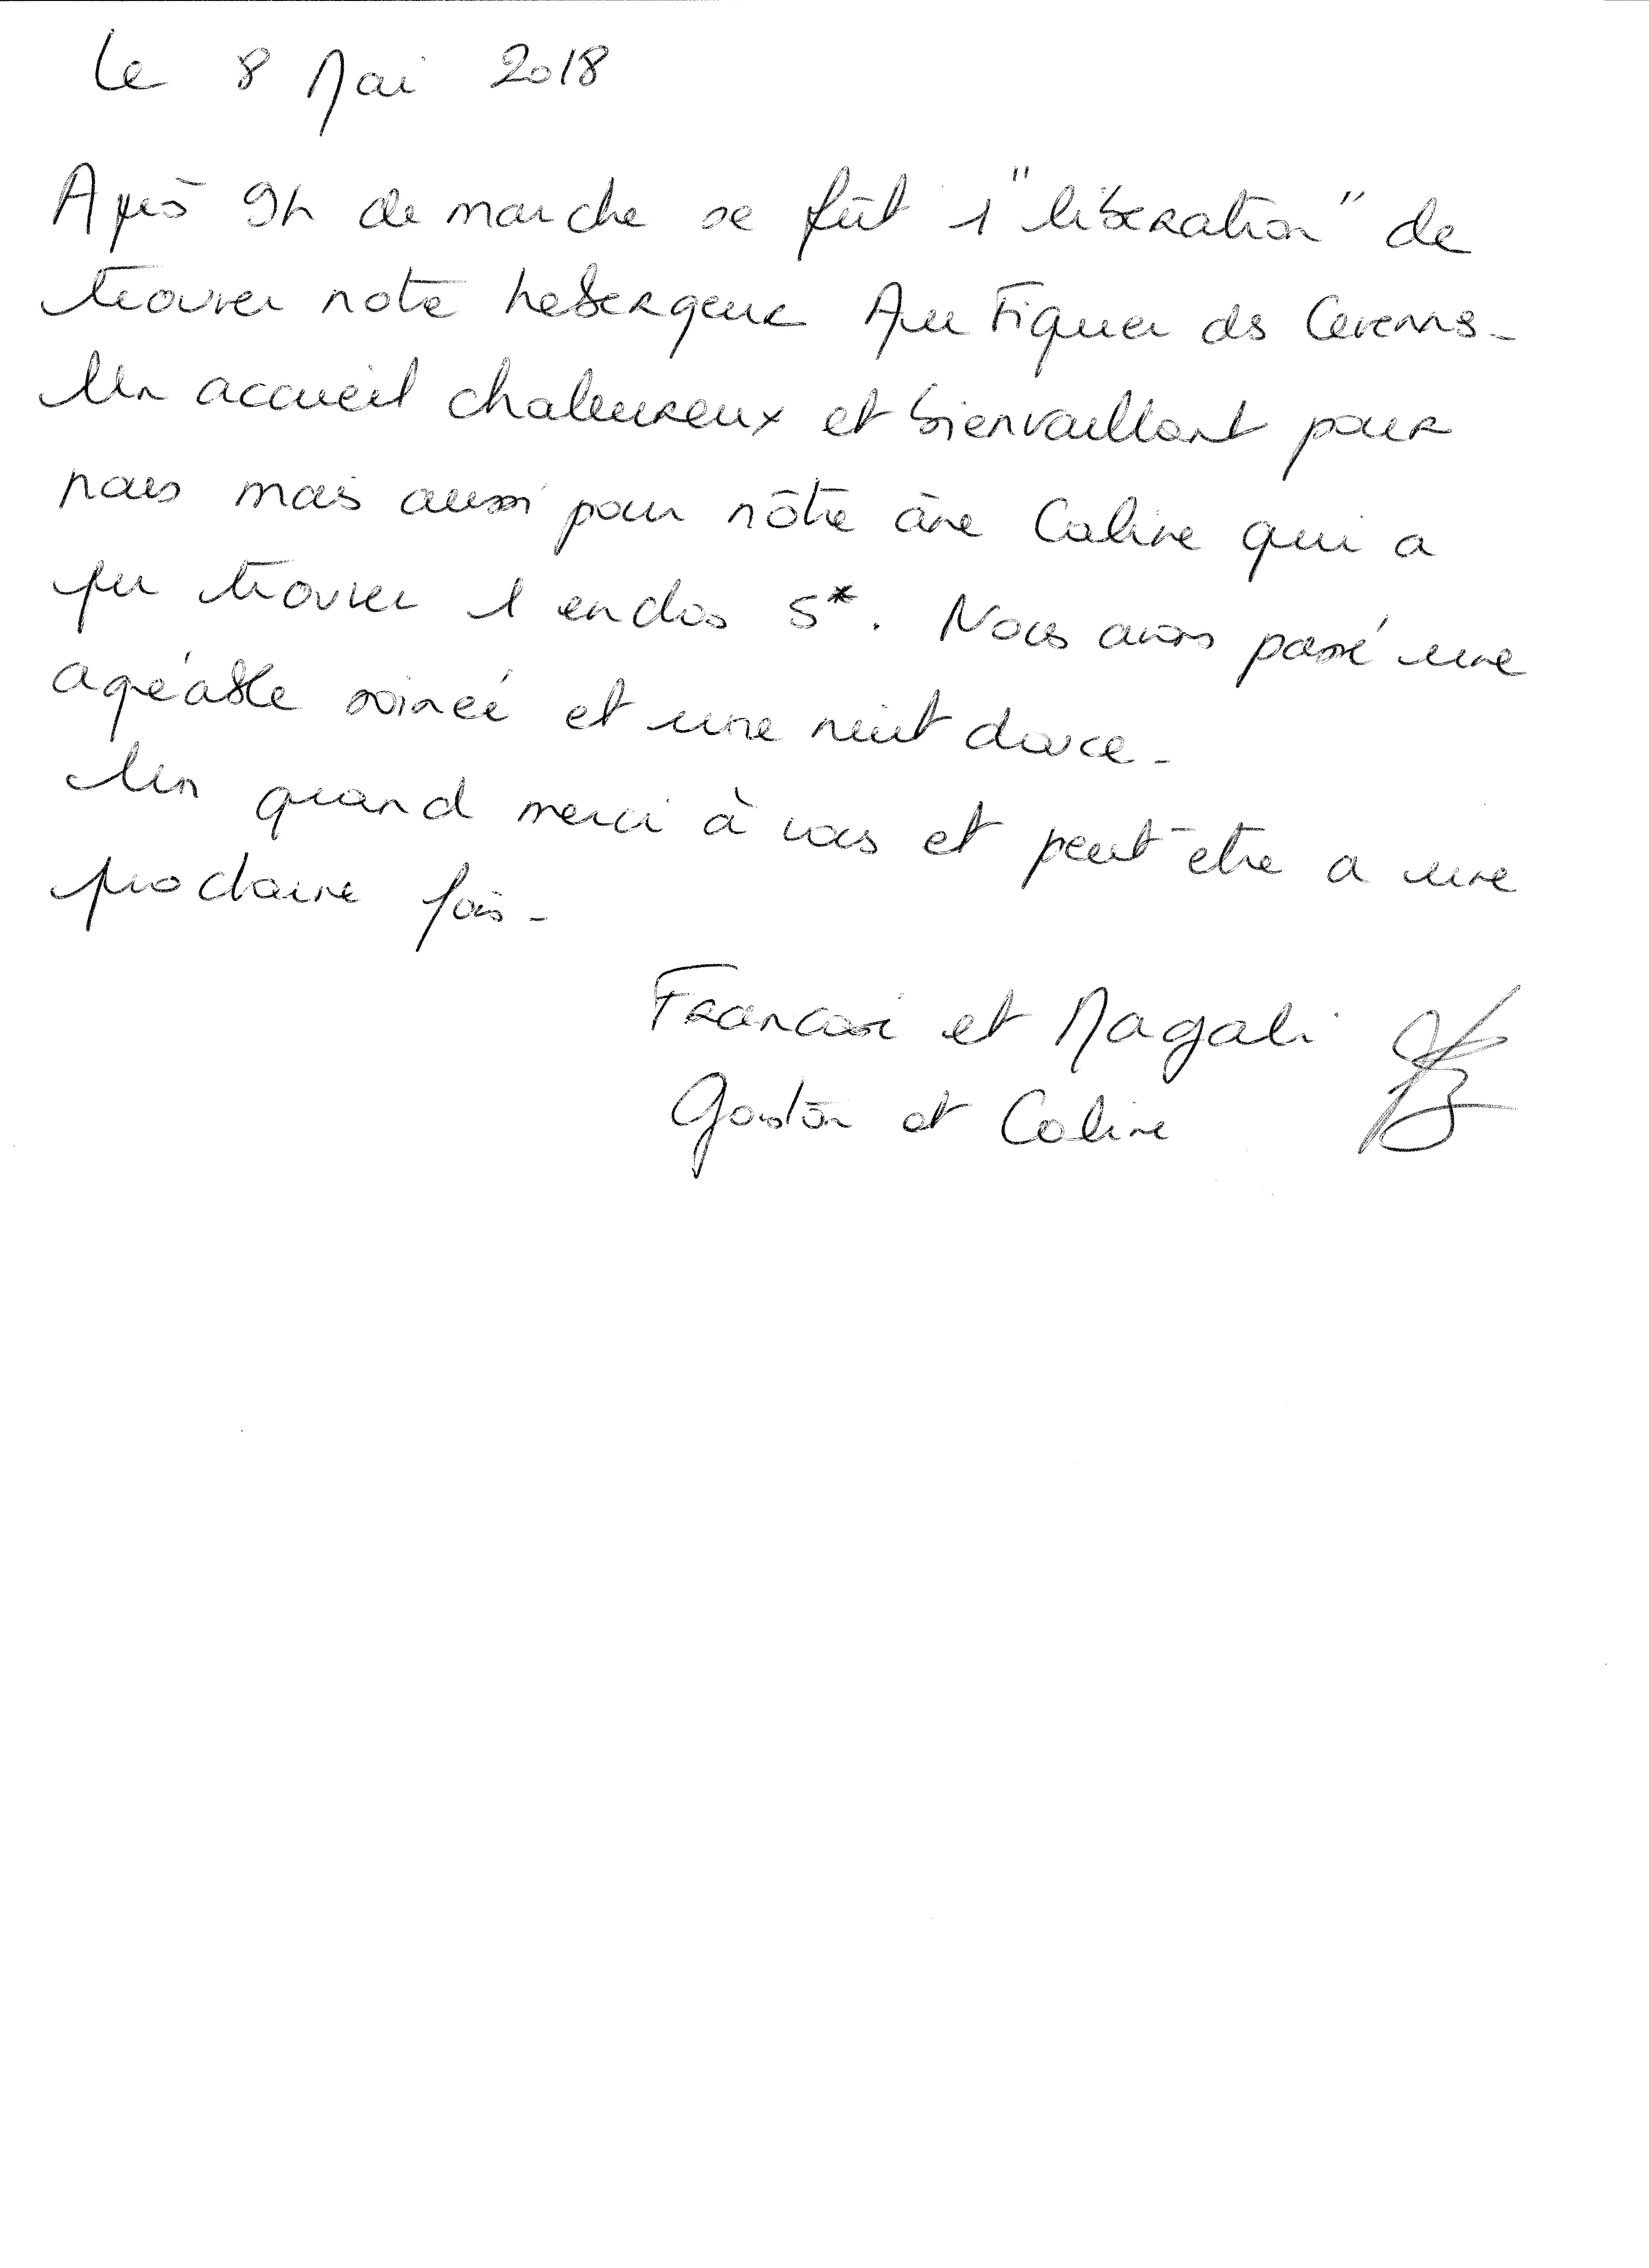 Le 8 Mai 2018
Après 9h de marche se fût 1 "libération" de
trouver notre hebergeur Au Figuier des Cevennes.
Un accueil chaleureux et bienvaillant pour
nous mais aussi pour nôtre âne Caline qui a
pu trouver 1 enclos 5*. Nous avons passé une
agréable soireé et une nuit douce.
Un quand merci à vous et peut-etre a une
prochaine fois.
et Magali
Gaston et Caline